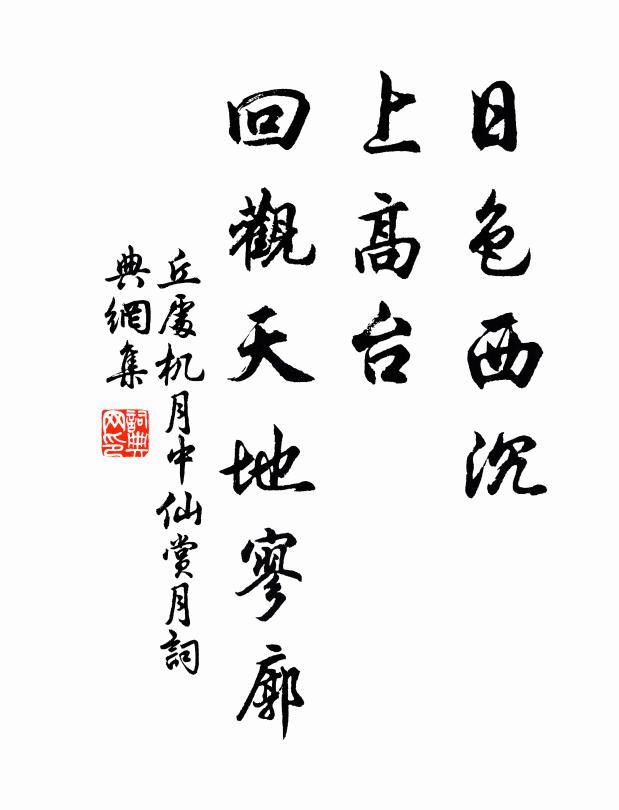 日色西沉
上高台
回觀天地寥廓
丘處机月中仙賞月詞
典網集
詞典网印